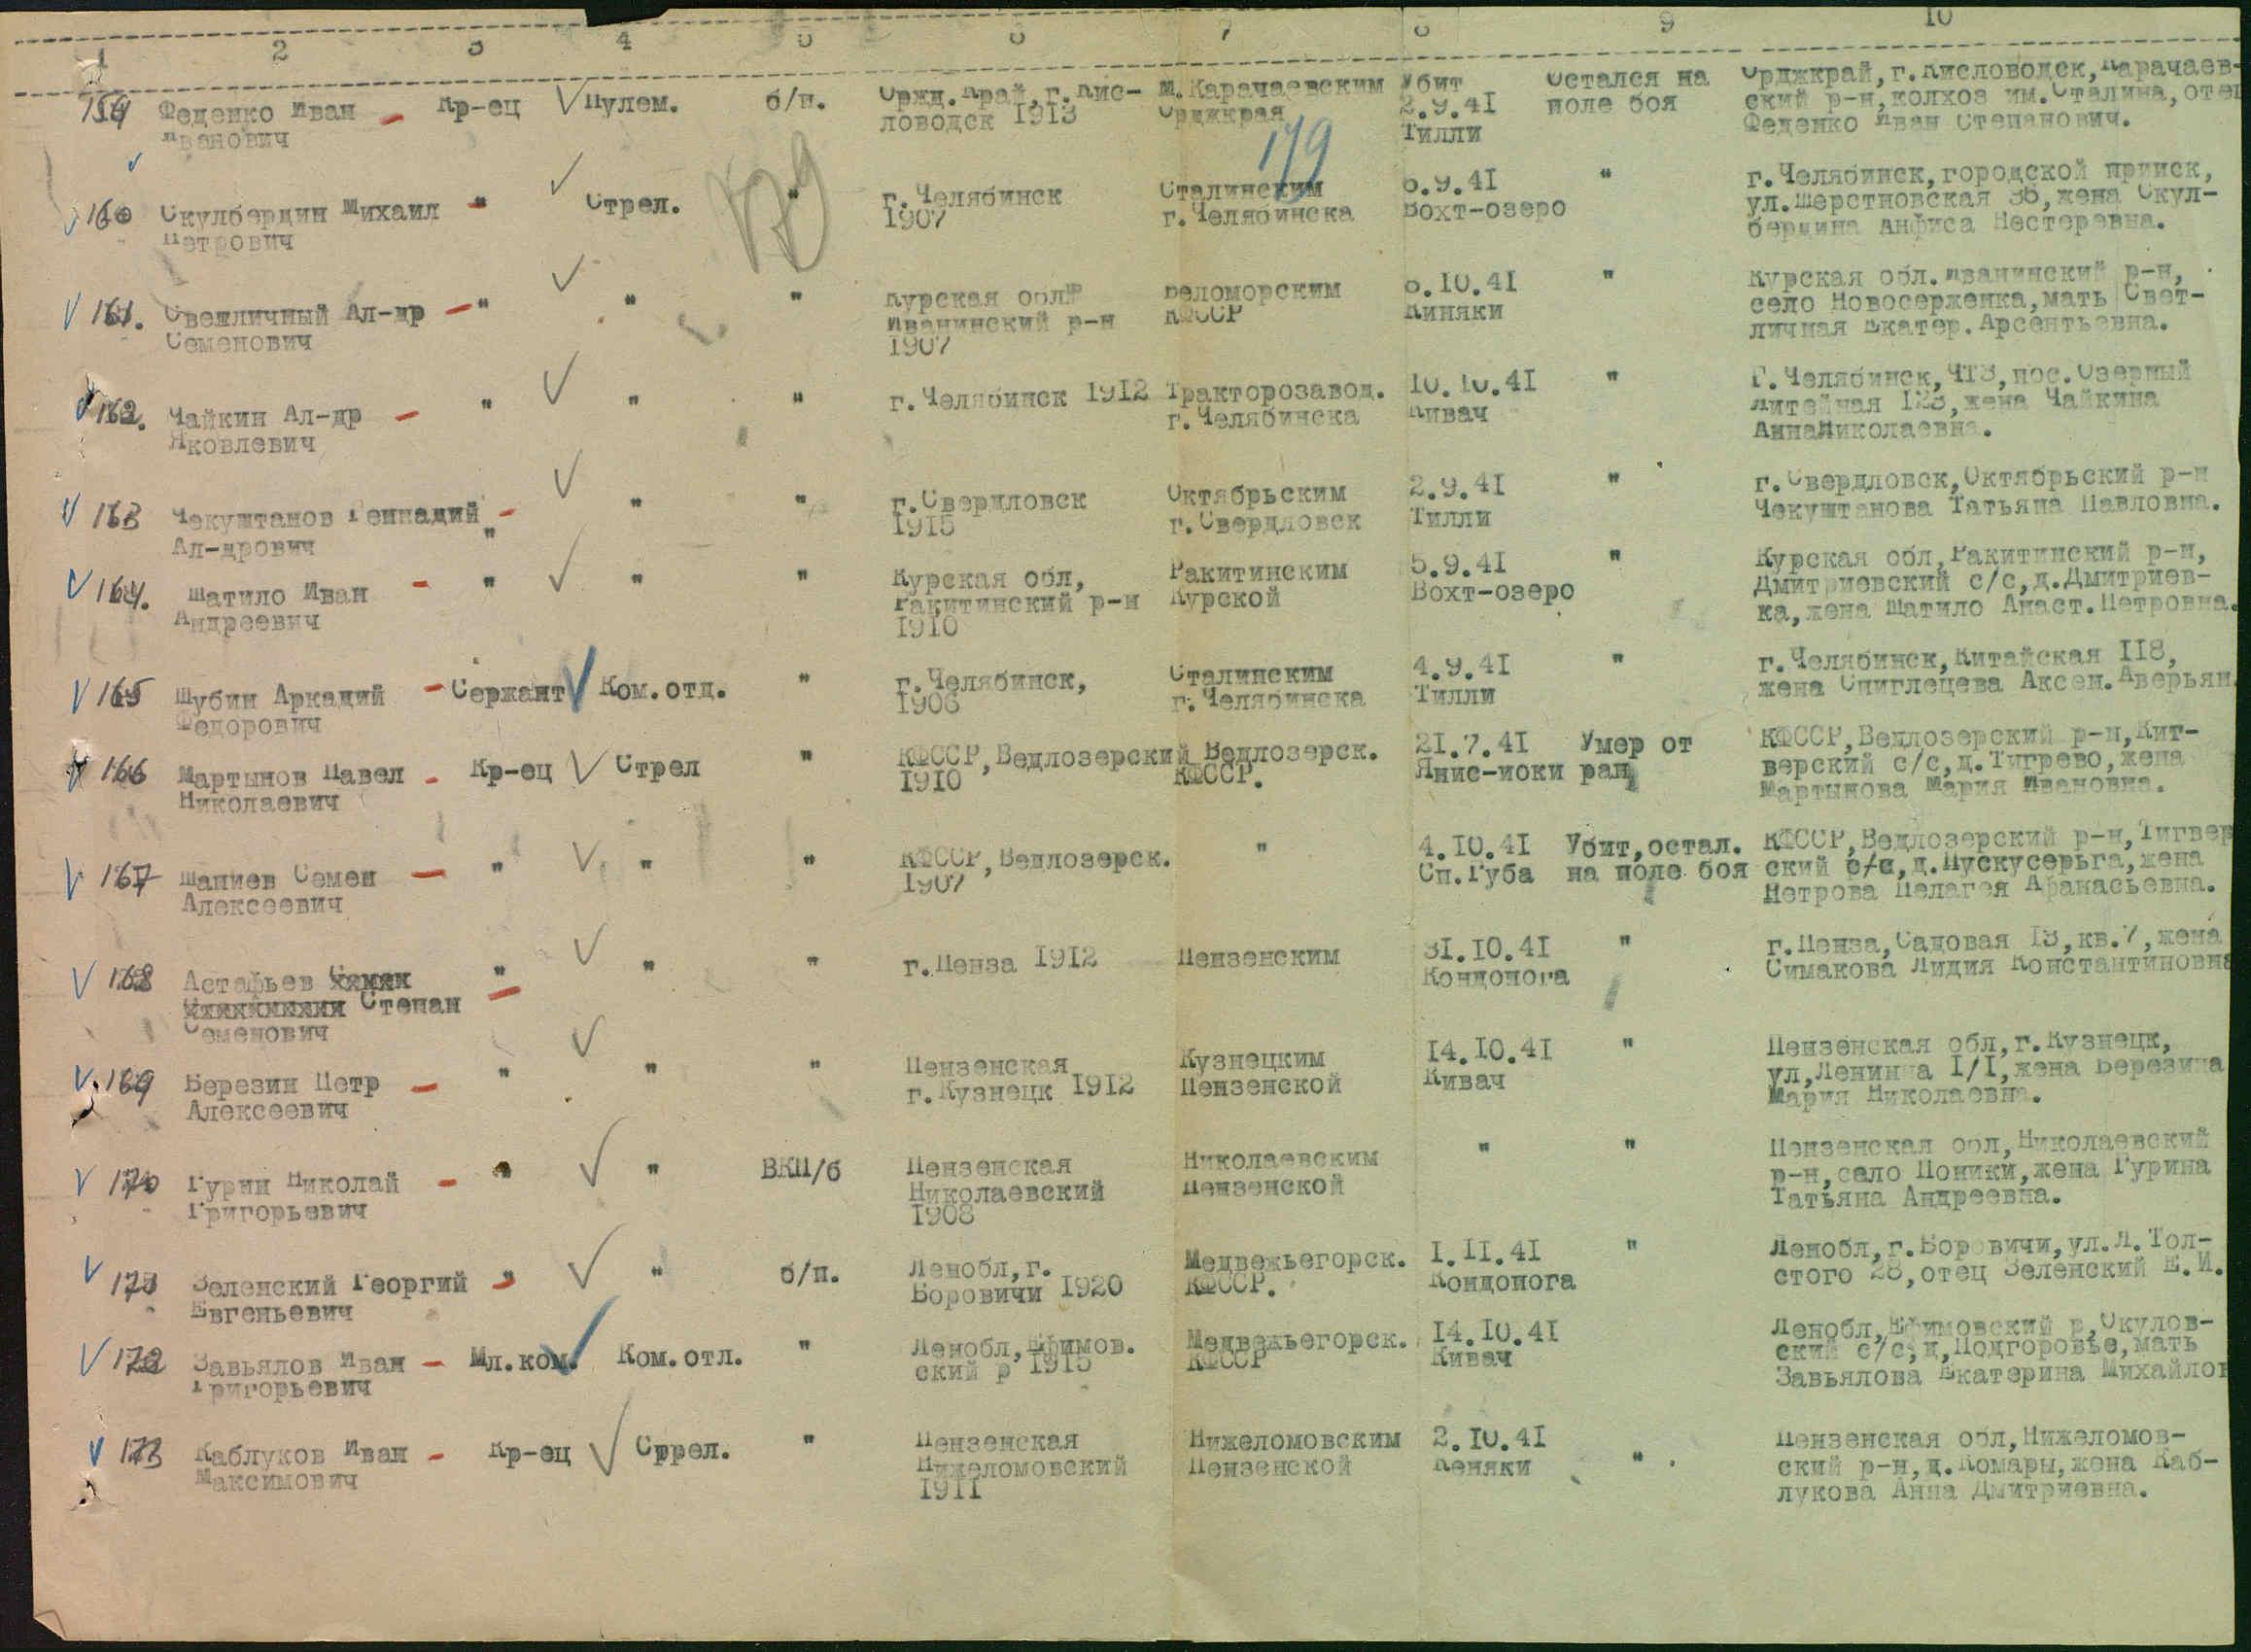 1 2 3 4 5 6 7 8 9 10
159 Феденко Иван Кр-ец Пулем. б/п. Оржд.край,г.Кис- М.Карачаевским Убит Остался на Орджкрай,г.Кисловодск,Карачаев-
Иванович ловодск 1913 Орджкрая 2.9.41 поле боя ский р-н,колхоз им.Сталина,отец
Тилли Феденко Иван Степанович.
179
179
160 Скулбердин Михаил " Стрел. " г.Челябинск Сталинским 6.9.41 " г.Челябинск,городской прииск,
Петрович 1907 г.Челябинска Вохт-озеро ул.Шерстновская 36,жена Скул-
бердина Анфиса Нестеревна.
161. Свешличный Ал-др " " " Курская обл Беломорским 8.10.41 " Курская обл.Иванинский р-н,
Семенович Иванинский р-н КФССР Киняки село Новосерженка,мать Свет-
1907 личная Екатер.Арсентьевна.
162. Чайкин Ал-др " " " г.Челябинск 1912 Тракторозавод. 10.10.41 " Г.Челябинск,ЧТЗ,пос.Озерный
Яковлевич г.Челябинска Кивач Литейная 123,жена Чайкина
АннаНиколаевна.
163 Чекуштанов Геннадий " " " г.Свердловск Октябрьским 2.9.41 " г.Свердловск,Октябрьский р-н
Ал-дрович 1915 г.Свердловск Тилли Чекуштанова Татьяна Павловна.
164. Шатило Иван " " " Курская обл, Ракитинским 5.9.41 " Курская обл,Ракитинский р-н,
Андреевич Ракитинский р-н Курской Вохт-озеро Дмитриевский с/с,д.Дмитриев-
1910 ка,жена Шатило Анаст.Петровна.
165 Шубин Аркадий Сержант Ком.отд. " г.Челябинск, Сталинским 4.9.41 " г.Челябинск,Китайская 118,
Федорович 1906 г.Челябинска Тилли жена Спиглецева Аксен.Аверьян.
166 Мартынов Павел Кр-ец Стрел " КФССР,Ведлозерский Ведлозерск. 21.7.41 Умер от КФССР,Ведлозерский р-н,Кит-
Николаевич 1910 КФССР. Янис-иоки ран верский с/с,д.Тигрево,жена
Мартынова Мария Ивановна.
167 Шаниев Семен " " " КФССР,Ведлозерск. " 4.10.41 Убит,остал. КФССР,Ведлозерский р-н,Тигвер
Алексеевич 1907 Сп.Губа на поле боя ский с/с,д.Пускусерьга,жена
Петрова Пелагея Афанасьевна.
168 Астафьев " " " г.Пенза 1912 Пензенским 31.10.41 " г.Пенза,Садовая 13,кв.7,жена
Степан Кондопога Симакова Лидия Константиновна
Семенович
169 Березин Петр " " " Пензенская Кузнецким 14.10.41 " Пензенская обл,г.Кузнецк,
Алексеевич г.Кузнецк 1912 Пензенской Кивач ул,Ленинна 1/1,жена Березина
Мария Николаевна.
170 Гурин Николай " " ВКП/б Пензенская Николаевским " " Пензенская обл,Николаевский
Григорьевич Николаевский Пензенской р-н,сало Поники,жена Гурина
1908 Татьяна Андреевна.
171 Зеленский Георгий " " б/п. Ленобл,г. Медвежьегорск. 1.11.41 " Ленобл,г.Боровичи,ул.Л.Тол-
Евгеньевич Боровичи 1920 КФССР. Кондопога стого 28,отец Зеленский Е.И.
172 Завьялов Иван Мл.ком. Ком.отл. " Ленобл,Ефимов. Медвежьегорск. 14.10.41 Ленобл,Ефимовский р,Окулов-
Григорьевич ский р 1915 КФССР Кивач ский с/с,д,Подгоровье,мать
Завьялова Екатерина Михайлов
173 Каблуков Иван Кр-ец Сррел. " Пензенская Нижеломовским 2.10.41 " Пензенская обл,Нижеломов-
Максимович Нижеломовский Пензенской Кеняки ский р-н,д.Комары,жена Каб-
1911 лукова Анна Дмитриевна.